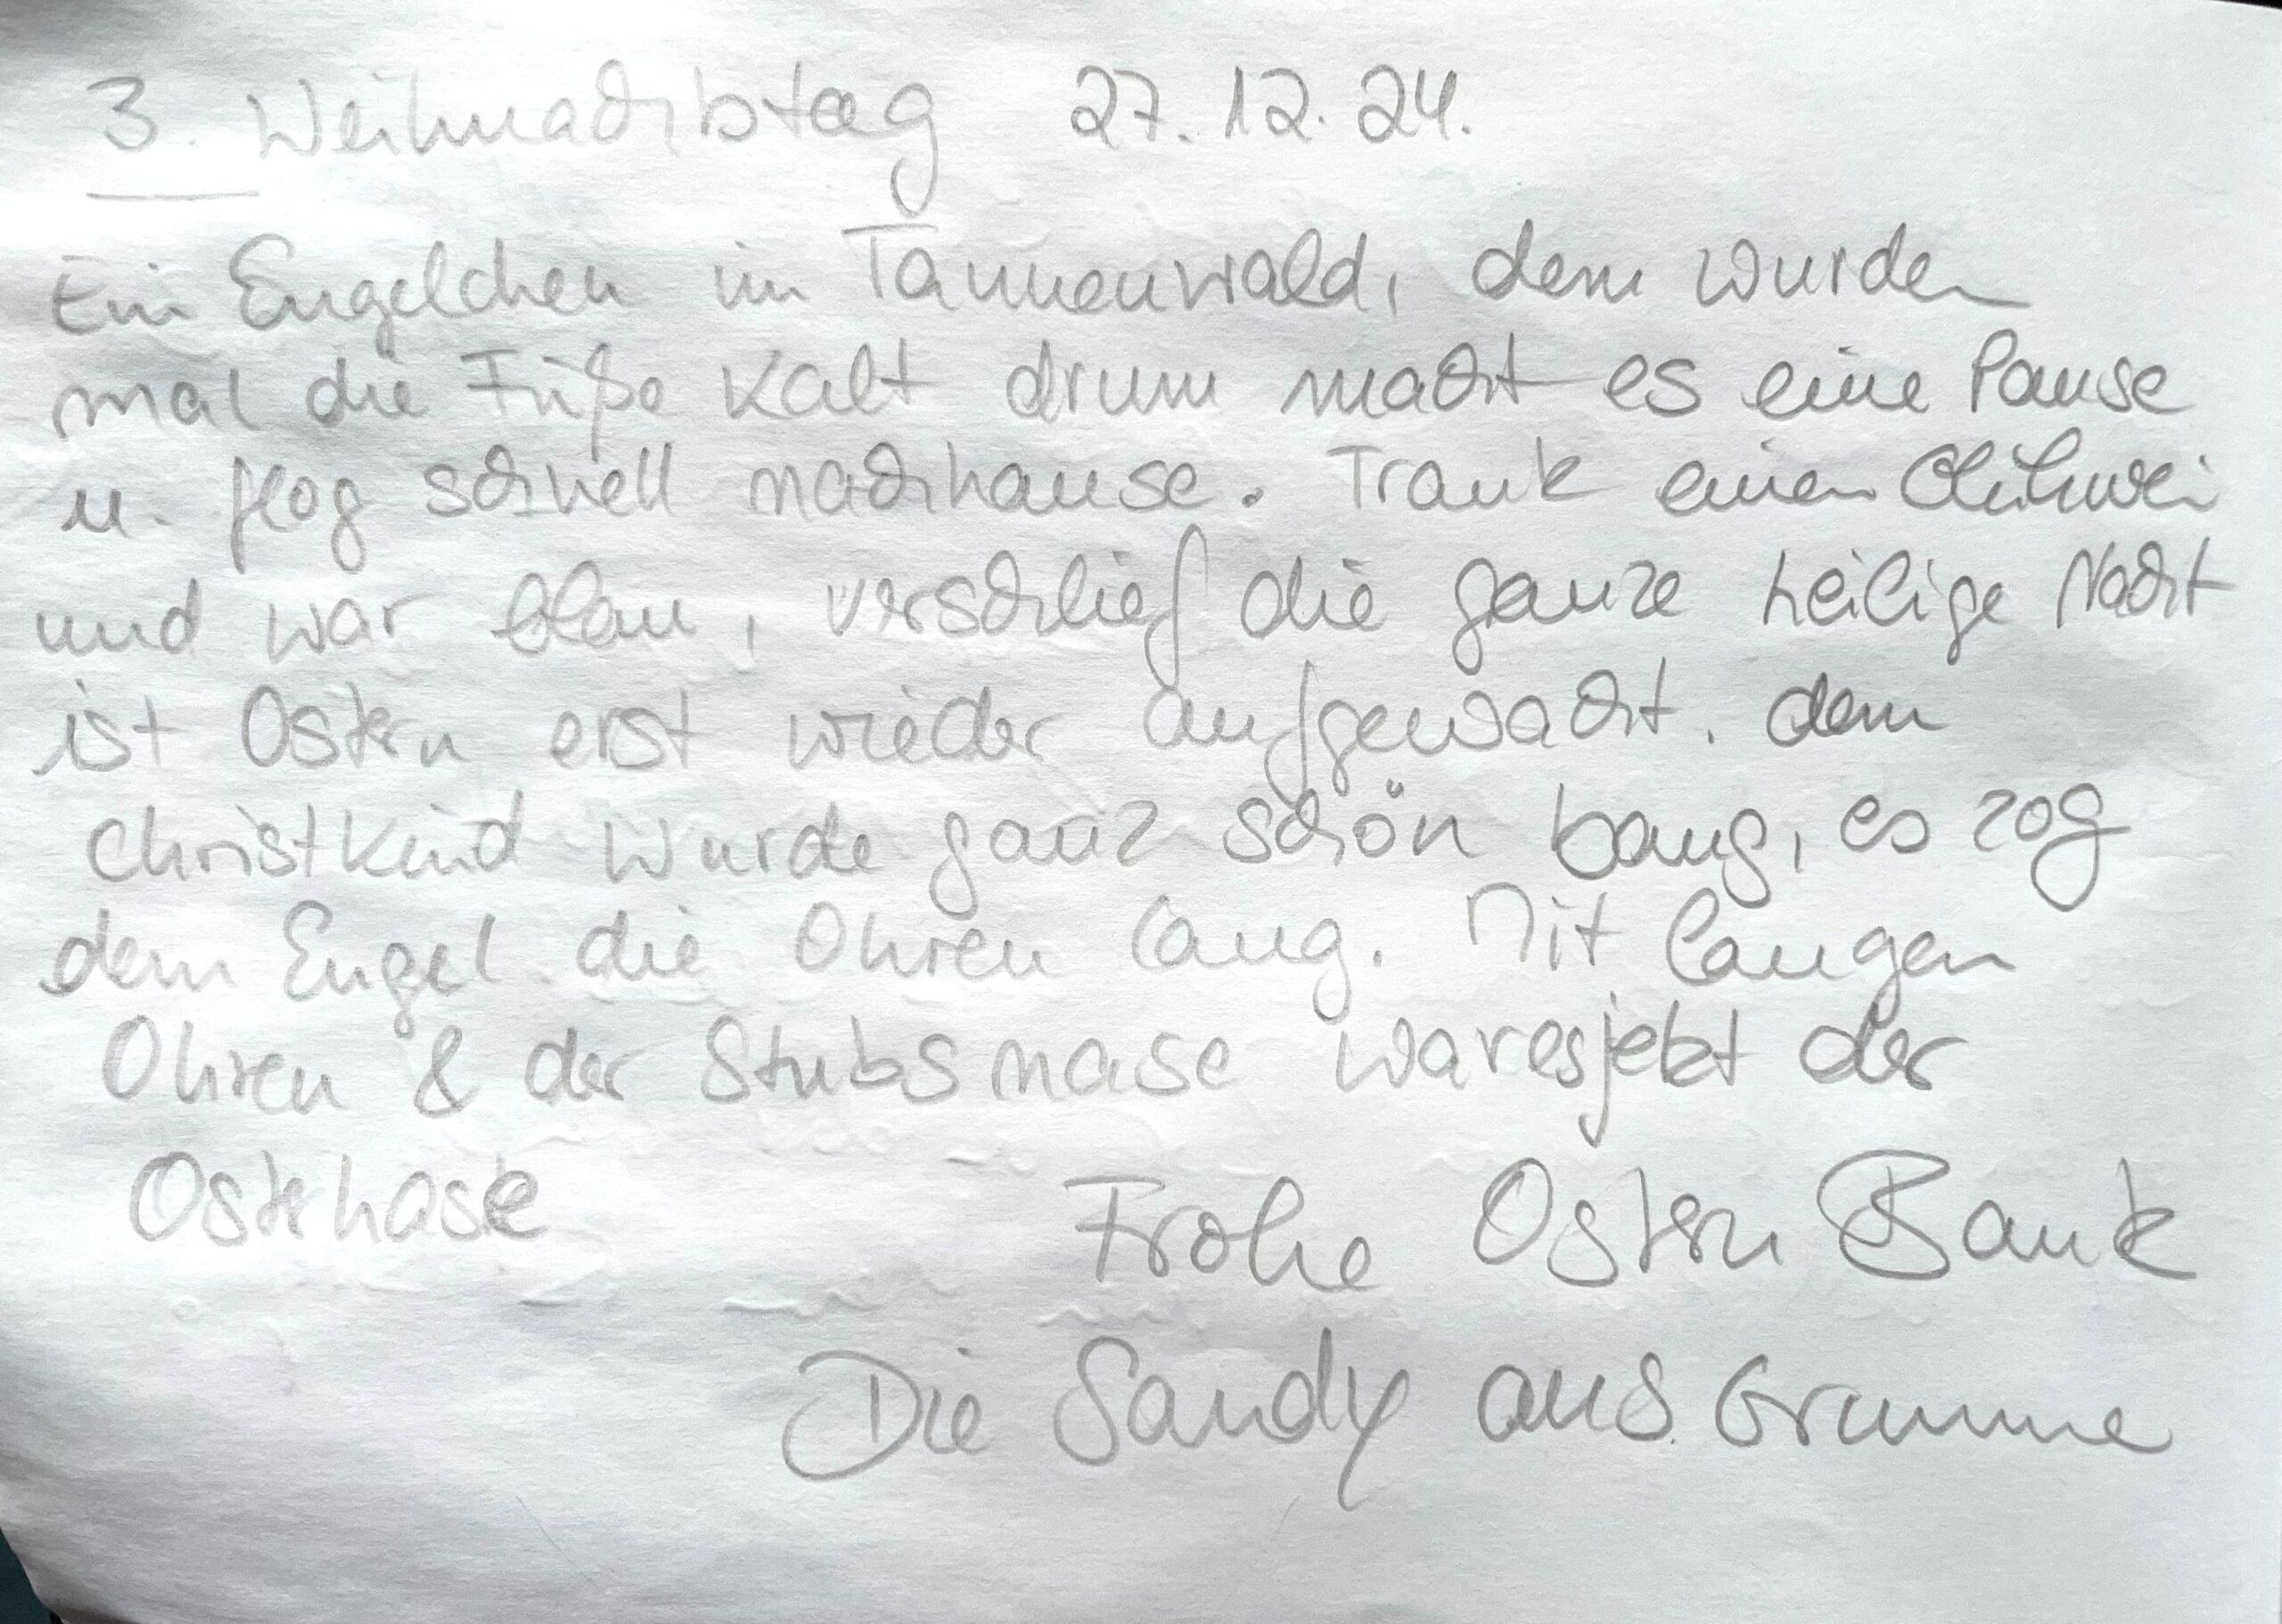 3. Weihnachtstag 27.12.24.
Ein Engelchen im Tannenwald, dem wurden
mal die Füße kalt drum macht es eine Pause
u. flog schnell nachhause. Trank einen Glühwei
und war blau, verschlief die ganze heilige Nacht
ist Ostern erst wieder aufgewacht. dem
Christkind wurde ganz schön bang, es zog
dem Engel die Ohren lang. Mit langen
Ohren & der Stubsnase war es jetzt der
Osterhase
Frohe Ostern Bank
Die Sandy aus Grumme